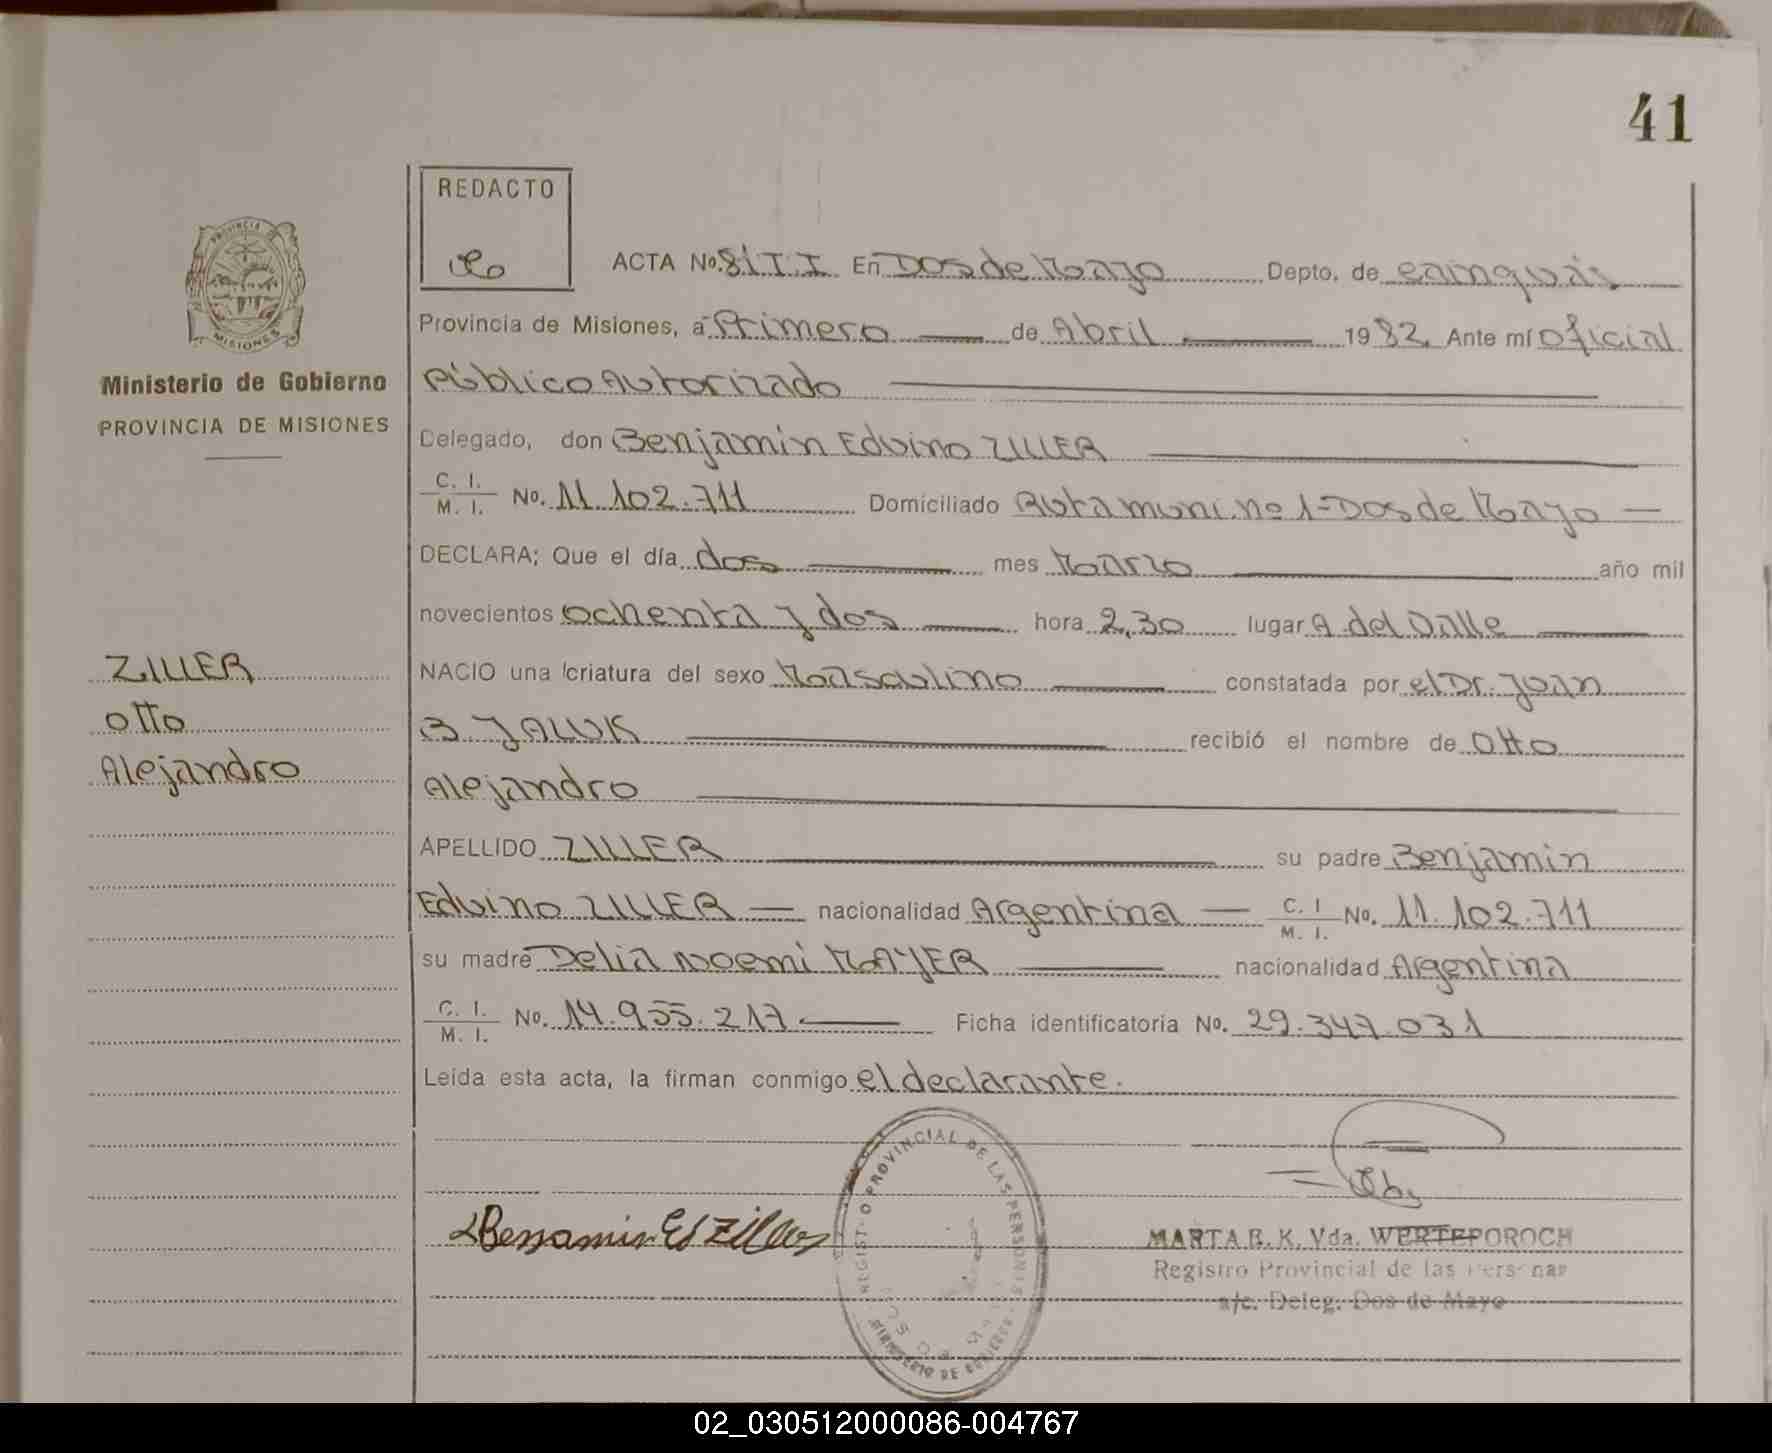 41
REDACTO
ACTA No. 81 T I En Dos de Mayo Depto. de Cainguás
Provincia de Misiones, a Primero de Abril 1982. Ante mí Oficial
Ministerio de Gobierno
Público Autorizado
PROVINCIA DE MISIONES
Delegado, don Benjamin Edvino ZILLER
C. I. M. I. No. 11.102.711 Domiciliado Ruta muni. nº 1-Dos de Mayo
DECLARA; Que el día dos mes Marzo año mil
novecientos ochenta y dos hora 2,30 lugar A del Valle
ZILLER
NACIO una criatura del sexo Masculino constatada por el Dr. Juan
Otto
B JALUK recibió el nombre de Otto
Alejandro
Alejandro
APELLIDO ZILLER su padre Benjamin
Edvino ZILLER nacionalidad Argentina C. I. M. I. No. 11.102.711
su madre Delia Noemi MAYER nacionalidad Argentina
C. I. M. I. No. 14.955.217 Ficha identificatoria No. 29.347.031
Leída esta acta, la firman conmigo el declarante.
Benjamin Ed Ziller
REGISTRO PROVINCIAL DE LAS PERSONAS
MINISTERIO DE GOBIERNO
MARTA E. K. Vda. WERTEPOROCH
Registro Provincial de las Personas
a/c. Deleg. Dos de Mayo
02_030512000086-004767